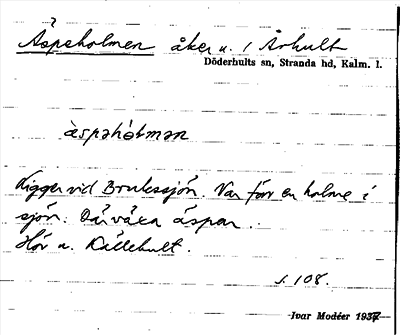 ?
Aspeholmen åker u. / Århult
Döderhults sn, Stranda hd, Kalm. l.
àspəhòlmən
Ligger vid Brukssjön. Var förr en holme i
sjön. Där växa äspar.
Hör u. Källehult.
s. 108.
Ivar Modéer 1937